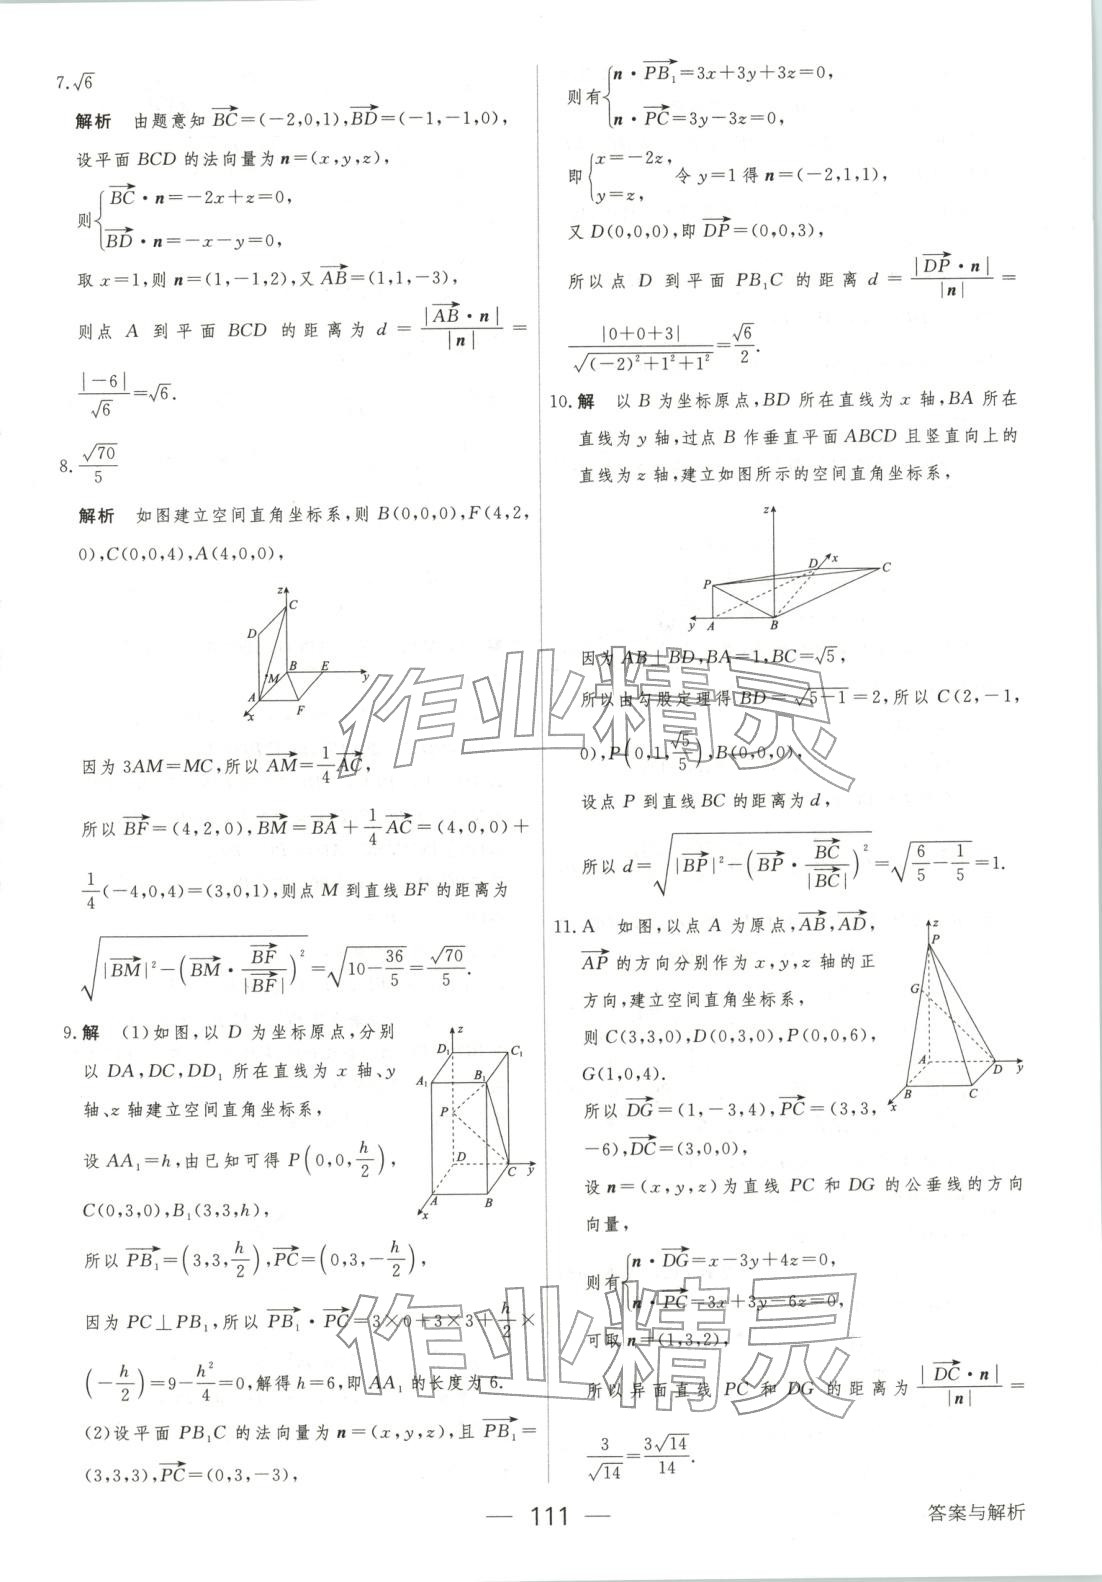 7.√6
解析 由题意知 BC=(-2,0,1),BD=(-1,-1,0),
设平面 BCD 的法向量为 n=(x,y,z),
则{BC·n=-2x+z=0,
BD·n=-x-y=0,
取 x=1,则 n=(1,-1,2),又 AB=(1,1,-3),
则点 A 到平面 BCD 的距离为 d=|AB·n|/|n|=
|-6|/√6=√6.
8.√70/5
解析 如图建立空间直角坐标系,则 B(0,0,0),F(4,2,
0),C(0,0,4),A(4,0,0),
z
C
D
B
E
y
M
A
F
x
因为 3AM=MC,所以 AM=1/4 AC,
所以 BF=(4,2,0),BM=BA+1/4 AC=(4,0,0)+
1/4(-4,0,4)=(3,0,1),则点 M 到直线 BF 的距离为
√(|BM|²-(BM·BF/|BF|)²)=√(10-36/5)=√70/5.
9.解 (1)如图,以 D 为坐标原点,分别
以 DA,DC,DD₁ 所在直线为 x 轴、y
轴、z 轴建立空间直角坐标系,
设 AA₁=h,由已知可得 P(0,0,h/2),
C(0,3,0),B₁(3,3,h),
z
D₁
C₁
A₁
B₁
P
D
C
y
A
B
x
所以 PB₁=(3,3,h/2),PC=(0,3,-h/2),
因为 PC⊥PB₁,所以 PB₁·PC=3×0+3×3+h/2×
(-h/2)=9-h²/4=0,解得 h=6,即 AA₁ 的长度为 6.
(2)设平面 PB₁C 的法向量为 n=(x,y,z),且 PB₁=
(3,3,3),PC=(0,3,-3),
则有{n·PB₁=3x+3y+3z=0,
n·PC=3y-3z=0,
即{x=-2z,
y=z,
令 y=1 得 n=(-2,1,1),
又 D(0,0,0),即 DP=(0,0,3),
所以点 D 到平面 PB₁C 的距离 d=|DP·n|/|n|=
|0+0+3|/√((-2)²+1²+1²)=√6/2.
10.解 以 B 为坐标原点,BD 所在直线为 x 轴,BA 所在
直线为 y 轴,过点 B 作垂直平面 ABCD 且竖直向上的
直线为 z 轴,建立如图所示的空间直角坐标系,
z
D
x
C
P
y
A
B
因为 AB⊥BD,BA=1,BC=√5,
所以由勾股定理得 BD=√(5-1)=2,所以 C(2,-1,
0),P(0,1,√5/5),B(0,0,0),
设点 P 到直线 BC 的距离为 d,
所以 d=√(|BP|²-(BP·BC/|BC|)²)=√(6/5-1/5)=1.
11.A 如图,以点 A 为原点,AB,AD,
AP 的方向分别作为 x,y,z 轴的正
方向,建立空间直角坐标系,
则 C(3,3,0),D(0,3,0),P(0,0,6),
G(1,0,4).
z
P
G
A
D
y
B
C
x
所以 DG=(1,-3,4),PC=(3,3,
-6),DC=(3,0,0),
设 n=(x,y,z)为直线 PC 和 DG 的公垂线的方向
向量,
则有{n·DG=x-3y+4z=0,
n·PC=3x+3y-6z=0,
可取 n=(1,3,2),
所以异面直线 PC 和 DG 的距离为|DC·n|/|n|=
3/√14=3√14/14.
作业精灵
作业精灵
— 111 —
答案与解析